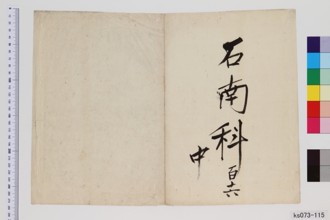 石南科
百六
中
ks073-115